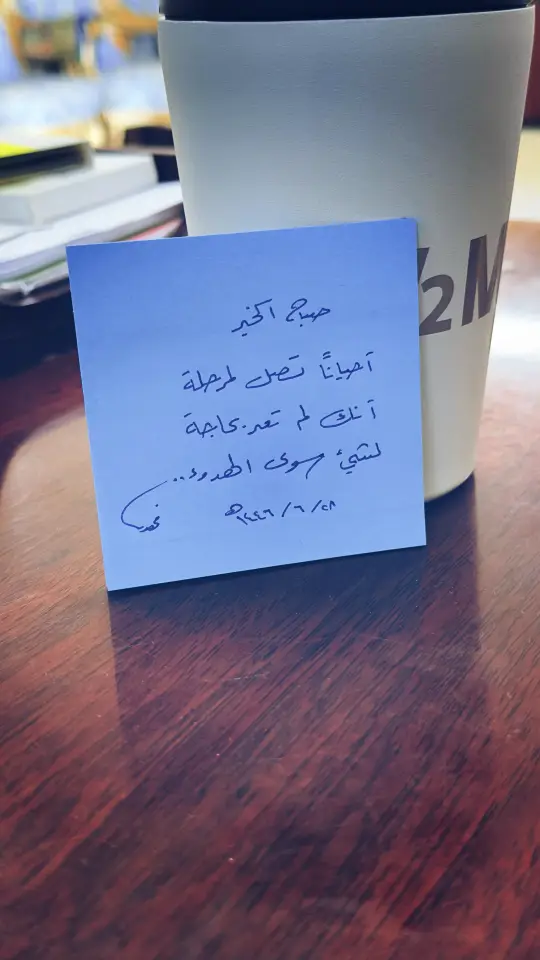 صباح الخير
أحياناً تصل لمرحلة
أنك لم تعد بحاجة
لشيء سوى الهدوء..
٢٨/٦/١٤٤٦هـ
½M